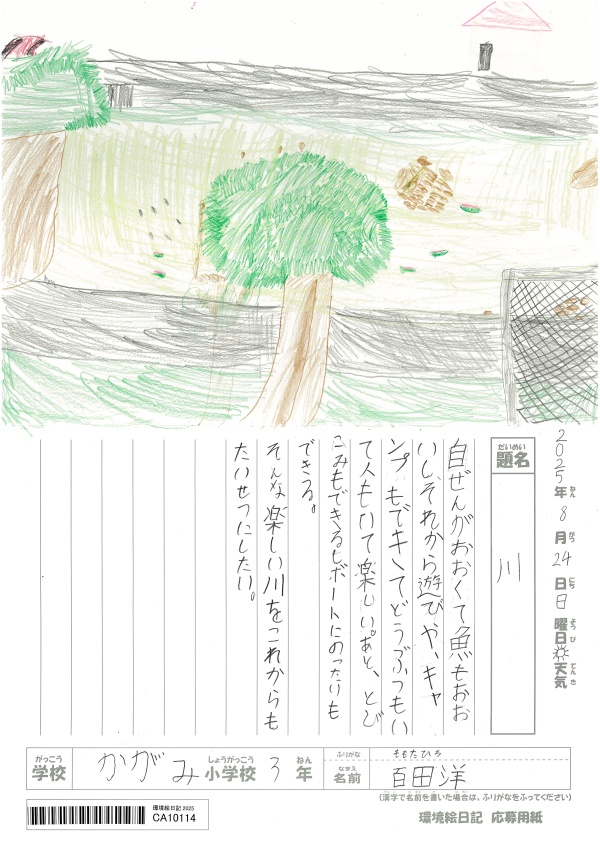 2025年ねん8月がつ24日にち日曜日ようび天気てんき
題名だいめい
川
自ぜんがおおくて魚もおお
いし、それから遊びや、キャ
ンプもできてどうぶつもい
て人もいて楽しい。あと、とび
こみもできるしボートにのったりも
できる。
そんな楽しい川をこれからも
たいせつにしたい。
がっこう
学校
かがみ
しょうがっこう
小学校
3
ねん
年
ふりがな
ももたひろ
なまえ
名前
百田洋
(漢字で名前を書いた場合は、ふりがなをふってください)
環境絵日記 2025
CA10114
環境絵日記 応募用紙